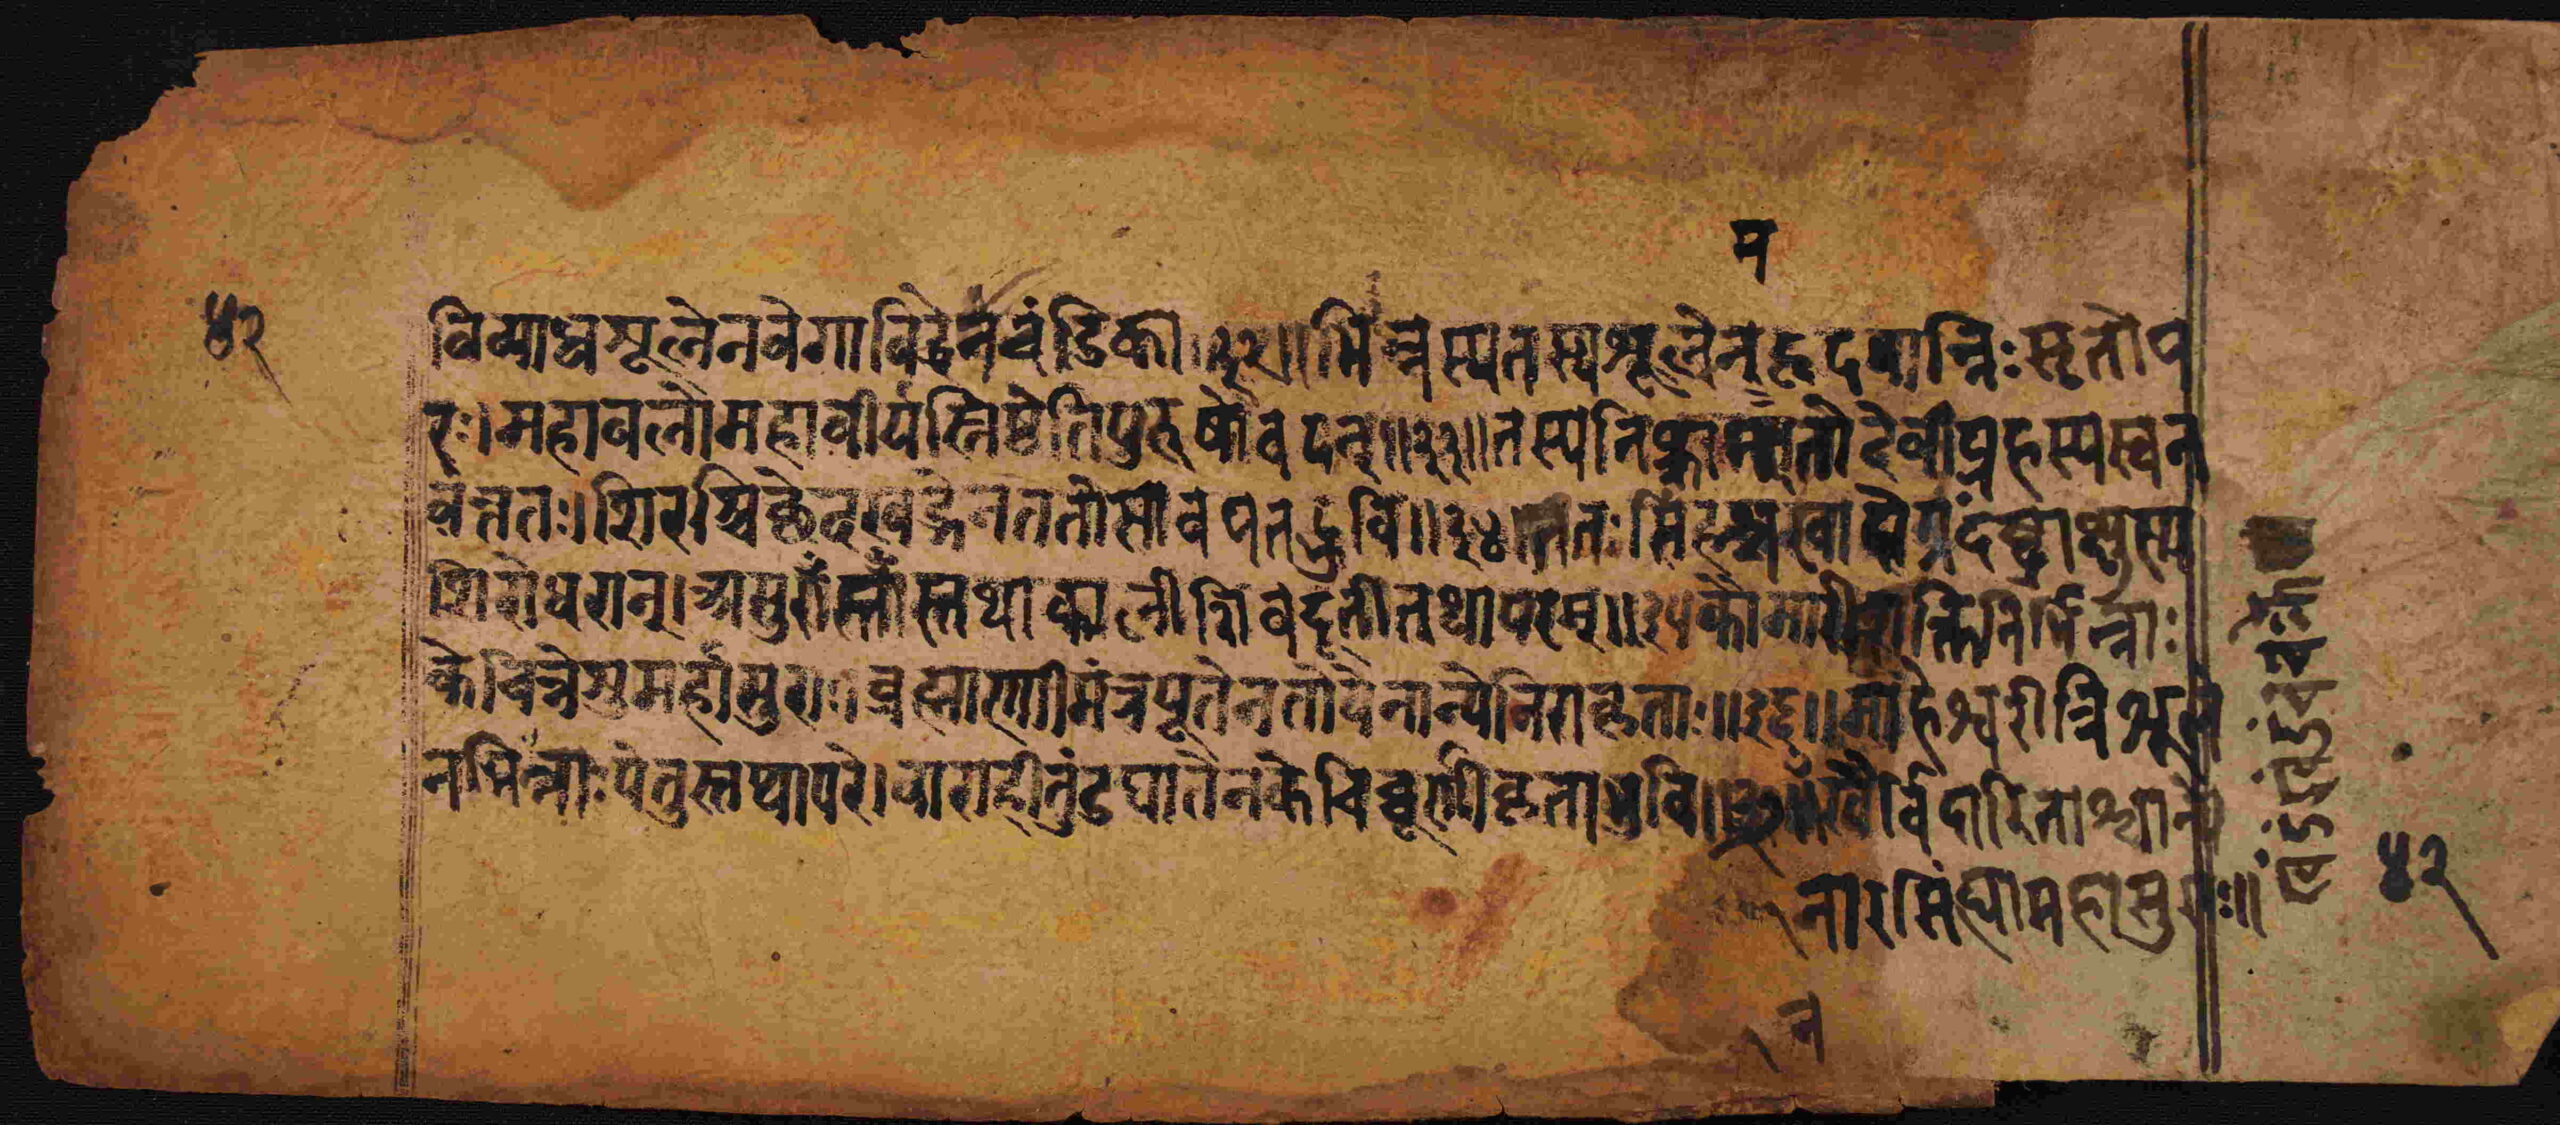 म
४२
विव्याधशूलेनवेगाविद्धेनचंडिका॥३२॥भिन्नस्यतस्यशूलेनहृदयान्निःसृतोप
रः।महाबलोमहावीर्यस्तिष्ठेतिपुरुषोवदन्॥३३॥तस्यनिष्क्रामतोदेवीप्रहस्यस्वन
वत्ततः।शिरश्चिछेदखड्गेनततोसावपतद्भुवि॥३४॥ततःसिंहश्चखादोग्रंदंष्ट्राक्षुस्म
शिरोधरान्।असुराँस्ताँस्तथाकालीशिवदूतीतथापरम्॥३५कौमारीशक्तिनिर्भिन्नाः
केचिन्नेशुर्महासुराः।ब्रह्माणीमंत्रपूतेनतोयेनान्येनिराकृताः॥३६॥माहेश्वरीत्रिशूले
नभिन्नाःपेतुस्तथापरे।वाराहीतुंडघातेनकेचिच्चूर्णीकृताभुवि॥३७॥खैर्विदारिताश्चान्ये
नारसिंह्यामहासुराः॥
४२
न